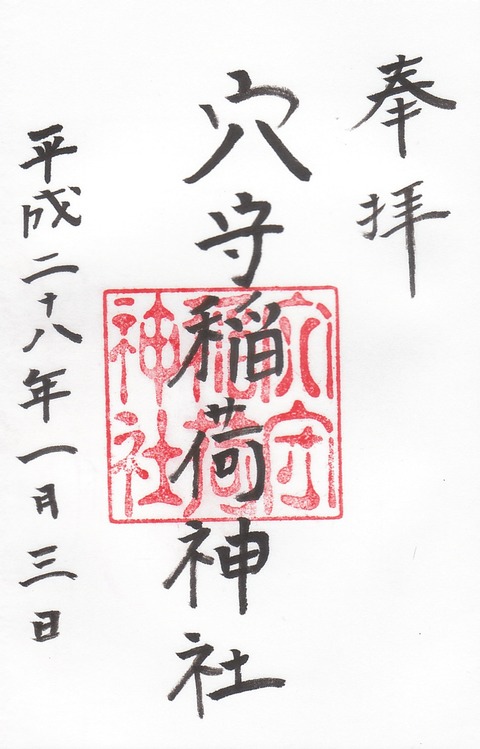 奉拝
穴守稲荷神社
穴守
稲荷
神社
平成二十八年一月三日